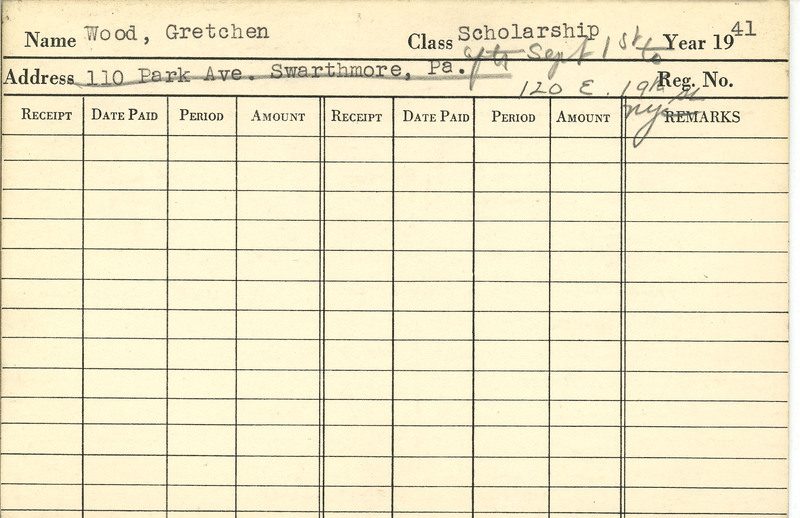 Name Wood, Gretchen Class Scholarship Year 1941
after Sept 1st to
Address 110 Park Ave. Swarthmore, Pa. Reg. No.
120 E. 19th St
NY
RECEIPT DATE PAID PERIOD AMOUNT RECEIPT DATE PAID PERIOD AMOUNT REMARKS